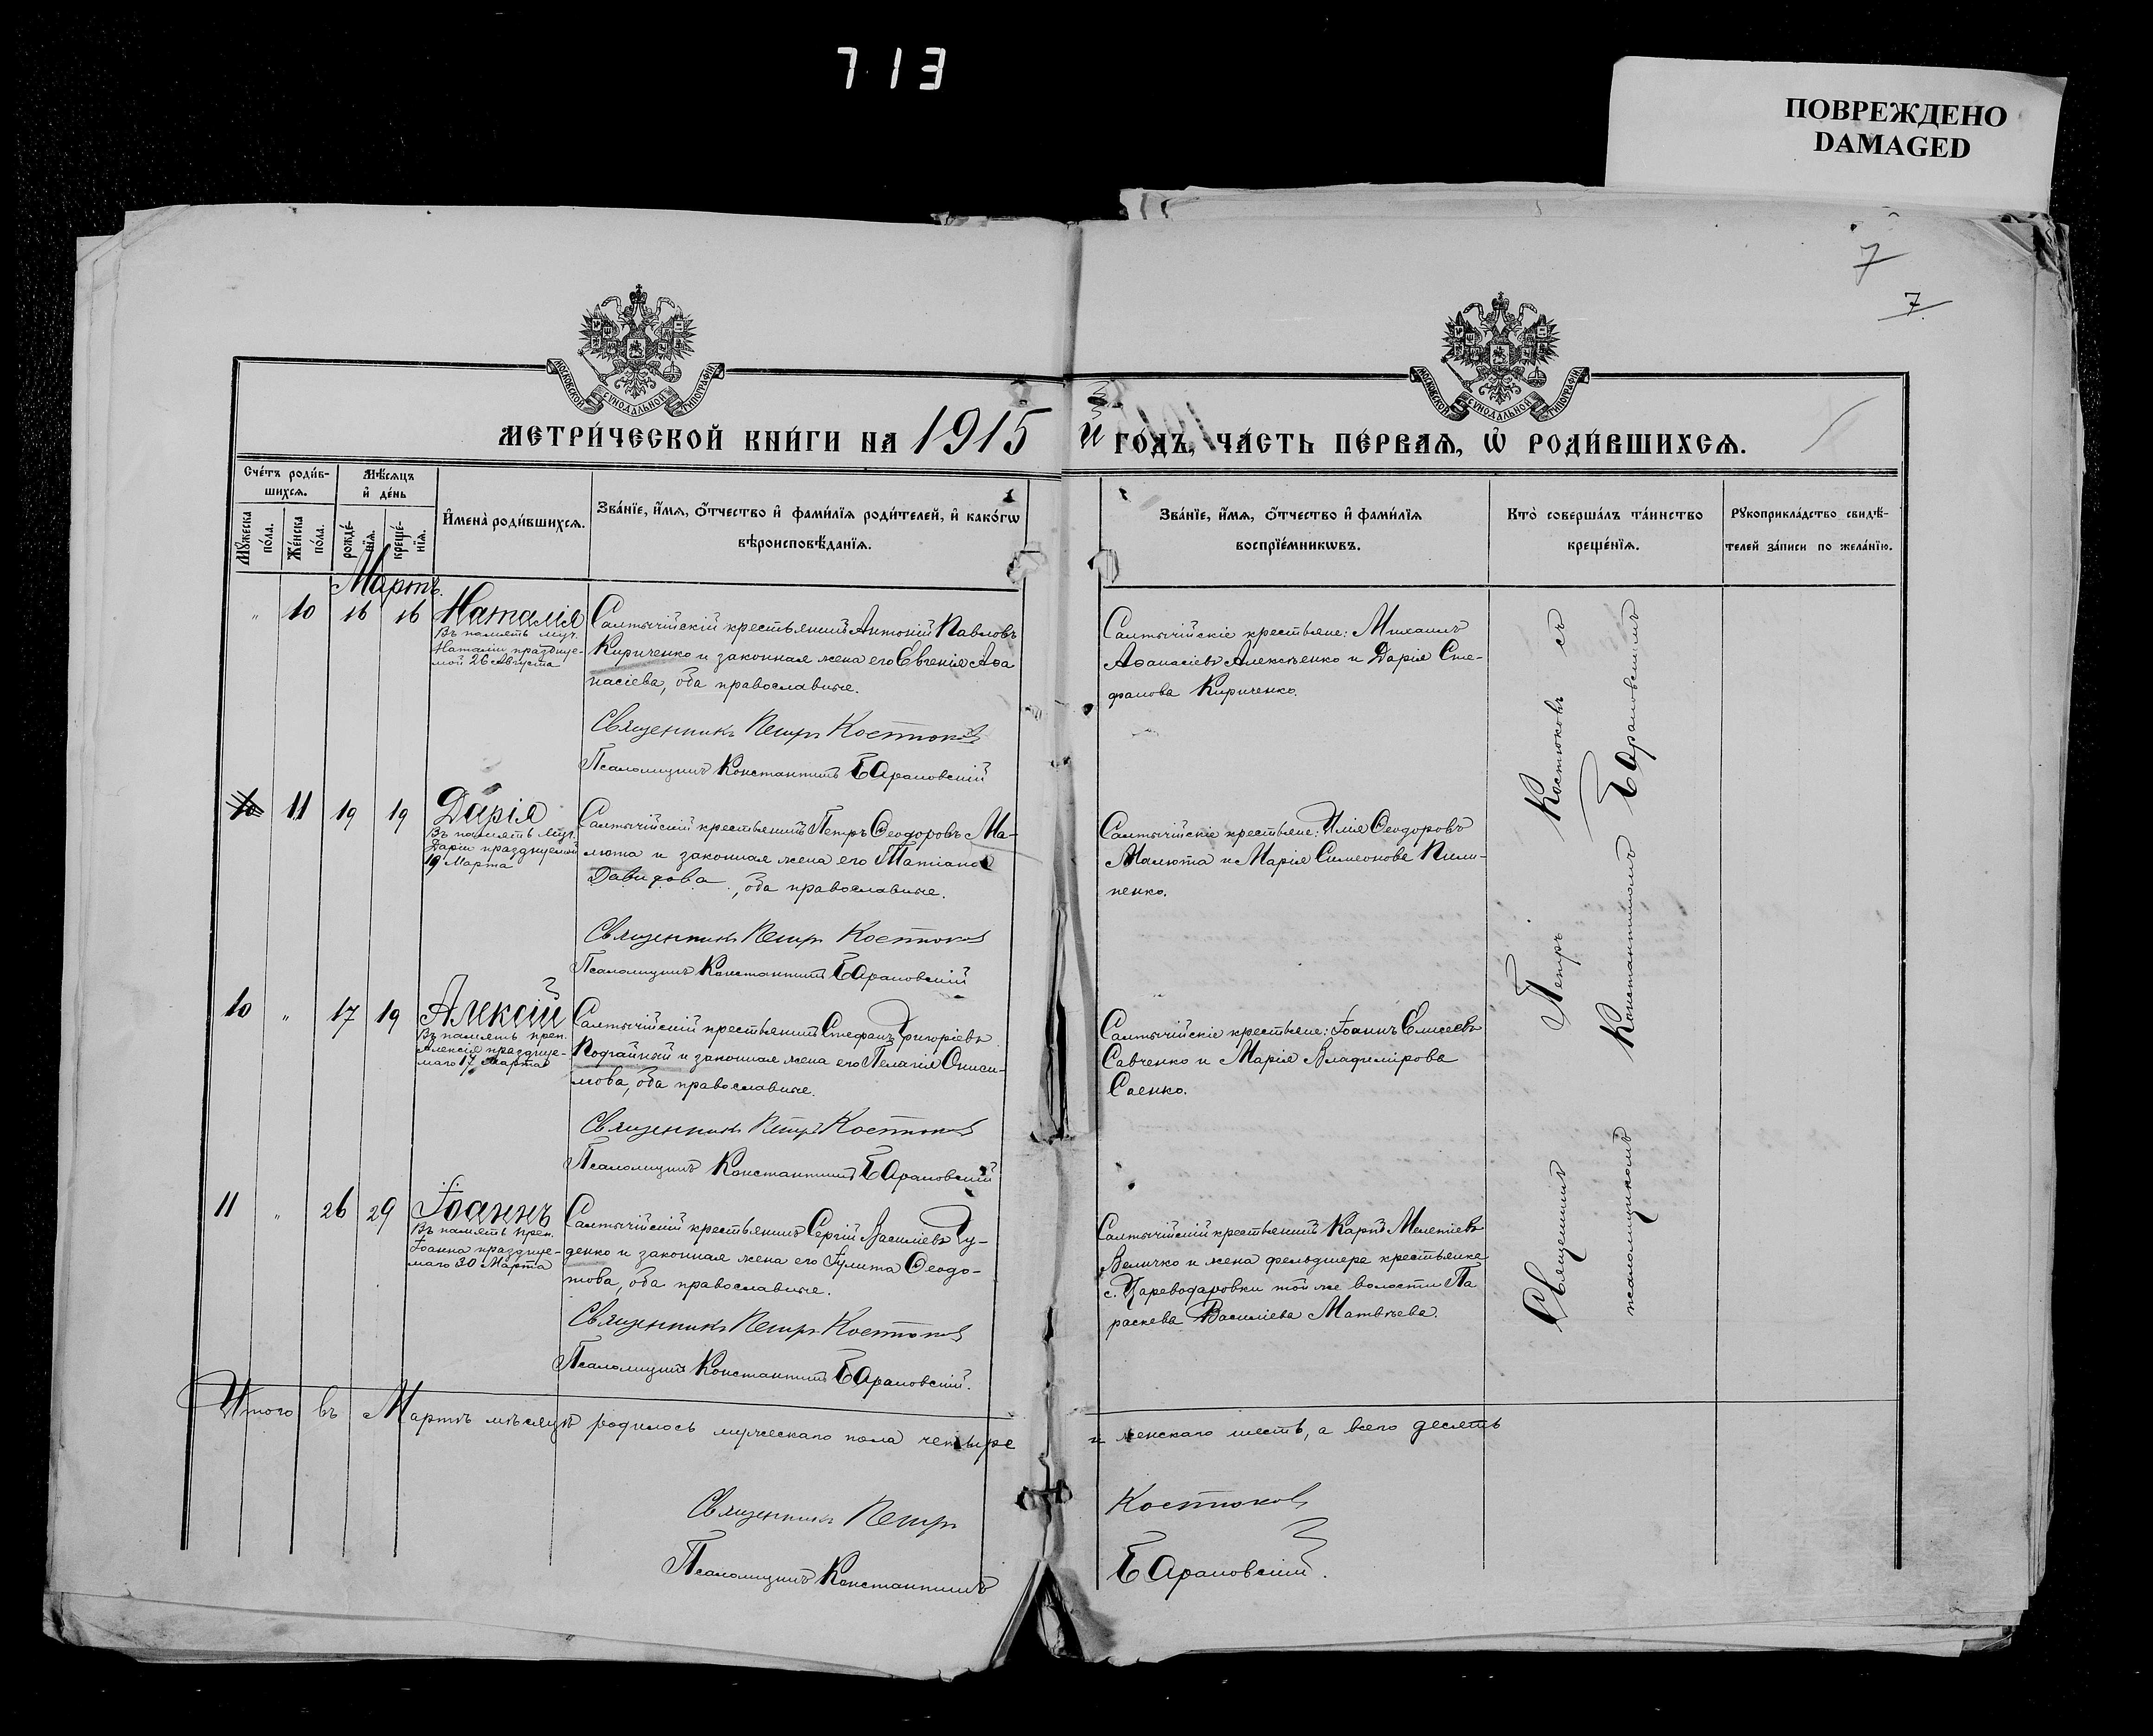 713
ПОВРЕЖДЕНО
DAMAGED
7
7
МОСКОВСКОЙ СѴНОДАЛЬНОЙ ТИПОГРАФІИ
МОСКОВСКОЙ СѴНОДАЛЬНОЙ ТИПОГРАФІИ
МЕТРИ́ЧЕСКОЙ КНИ́ГИ НА 1915 й ГО́ДЪ, ЧА́СТЬ ПЕ́РВАѦ, Ѡ҆ РОДИ́ВШИХСѦ.
Сче́тъ роди́в-
шихсѧ.
Мѣ́сѧцъ
и҆ де́нь
Мꙋ́жеска
по́ла.
Же́нска
по́ла.
рожде́-
нїѧ.
креще́-
нїѧ.
И҆мена̀ роди́вшихсѧ.
Зва́нїе, и҆́мѧ, ѻ҆́тчество и҆ фами́лїѧ роди́телей, и҆ како́гѡ
вѣроисповѣ́данїѧ.
Зва́нїе, и҆́мѧ, ѻ҆́тчество и҆ фами́лїѧ
воспрїе́мникѡвъ.
Кто̀ соверша́лъ та́инство
креще́нїѧ.
Рꙋкоприкла́дство свидѣ́-
телей за́писи по жела́нїю.
Мартъ.
" 10 16 16 Наталія
Въ память муч.
Наталіи празднуе-
мой 26 Августа
Салтычійскій крестьянинъ Антоній Павловъ
Кириченко и законная жена его Евгенія Аѳа
насіева, оба православные.
Священникъ Петръ Костюковъ
Псаломщикъ Константинъ Барановскій
Салтычійскіе крестьяне: Михаилъ
Аѳанасіевъ Алексѣенко и Дарія Сте-
фанова Кириченко.
10 11 19 19 Дарія
Въ память муч.
Даріи празднуемой
19 Марта
Салтычійскій крестьянинъ Петръ Ѳеодоровъ Ма-
люта и законная жена его Татіана
Давидова, оба православные.
Священникъ Петръ Костюковъ
Псаломщикъ Константинъ Барановскій
Салтычійскіе крестьяне: Илія Ѳеодоровъ
Малюта и Марія Симеонова Пили-
пенко.
10 " 17 19 Алексій
Въ память преп.
Алексія празднуе-
маго 17 Марта
Салтычійскій крестьянинъ Стефанъ Григоріевъ
Подгайный и законная жена его Пелагія Ониси-
мова, оба православные.
Священникъ Петръ Костюковъ
Псаломщикъ Константинъ Барановскій
Салтычійскіе крестьяне: Іоаннъ Елисеевъ
Савченко и Марія Владимірова
Саенко.
11 " 26 29 Іоаннъ
Въ память преп.
Іоанна празднуе-
маго 30 Марта
Салтычійскій крестьянинъ Сергій Василіевъ Ду-
денко и законная жена его Іулита Ѳеодо-
това, оба православные.
Священникъ Петръ Костюковъ
Псаломщикъ Константинъ Барановскій.
Салтычійскій крестьянинъ Карпъ Мелетіевъ
Величко и жена фельдшера крестьянка
с. Цареводаровки той же волости Па
раскева Василіева Матвѣева.
Священникъ Петръ Костюковъ съ
псаломщикомъ Константиномъ Барановскимъ
Итого въ Мартѣ мѣсяцѣ родилось мужескаго пола четыре и женскаго шесть, а всего десять
Священникъ Петръ Костюковъ
Псаломщикъ Константинъ Барановскій.